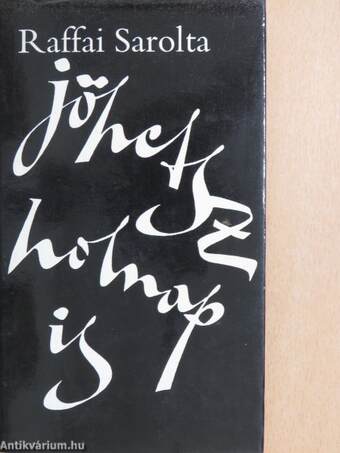 Raffai Sarolta
jöhetsz
holnap
is
Antikvárium.hu